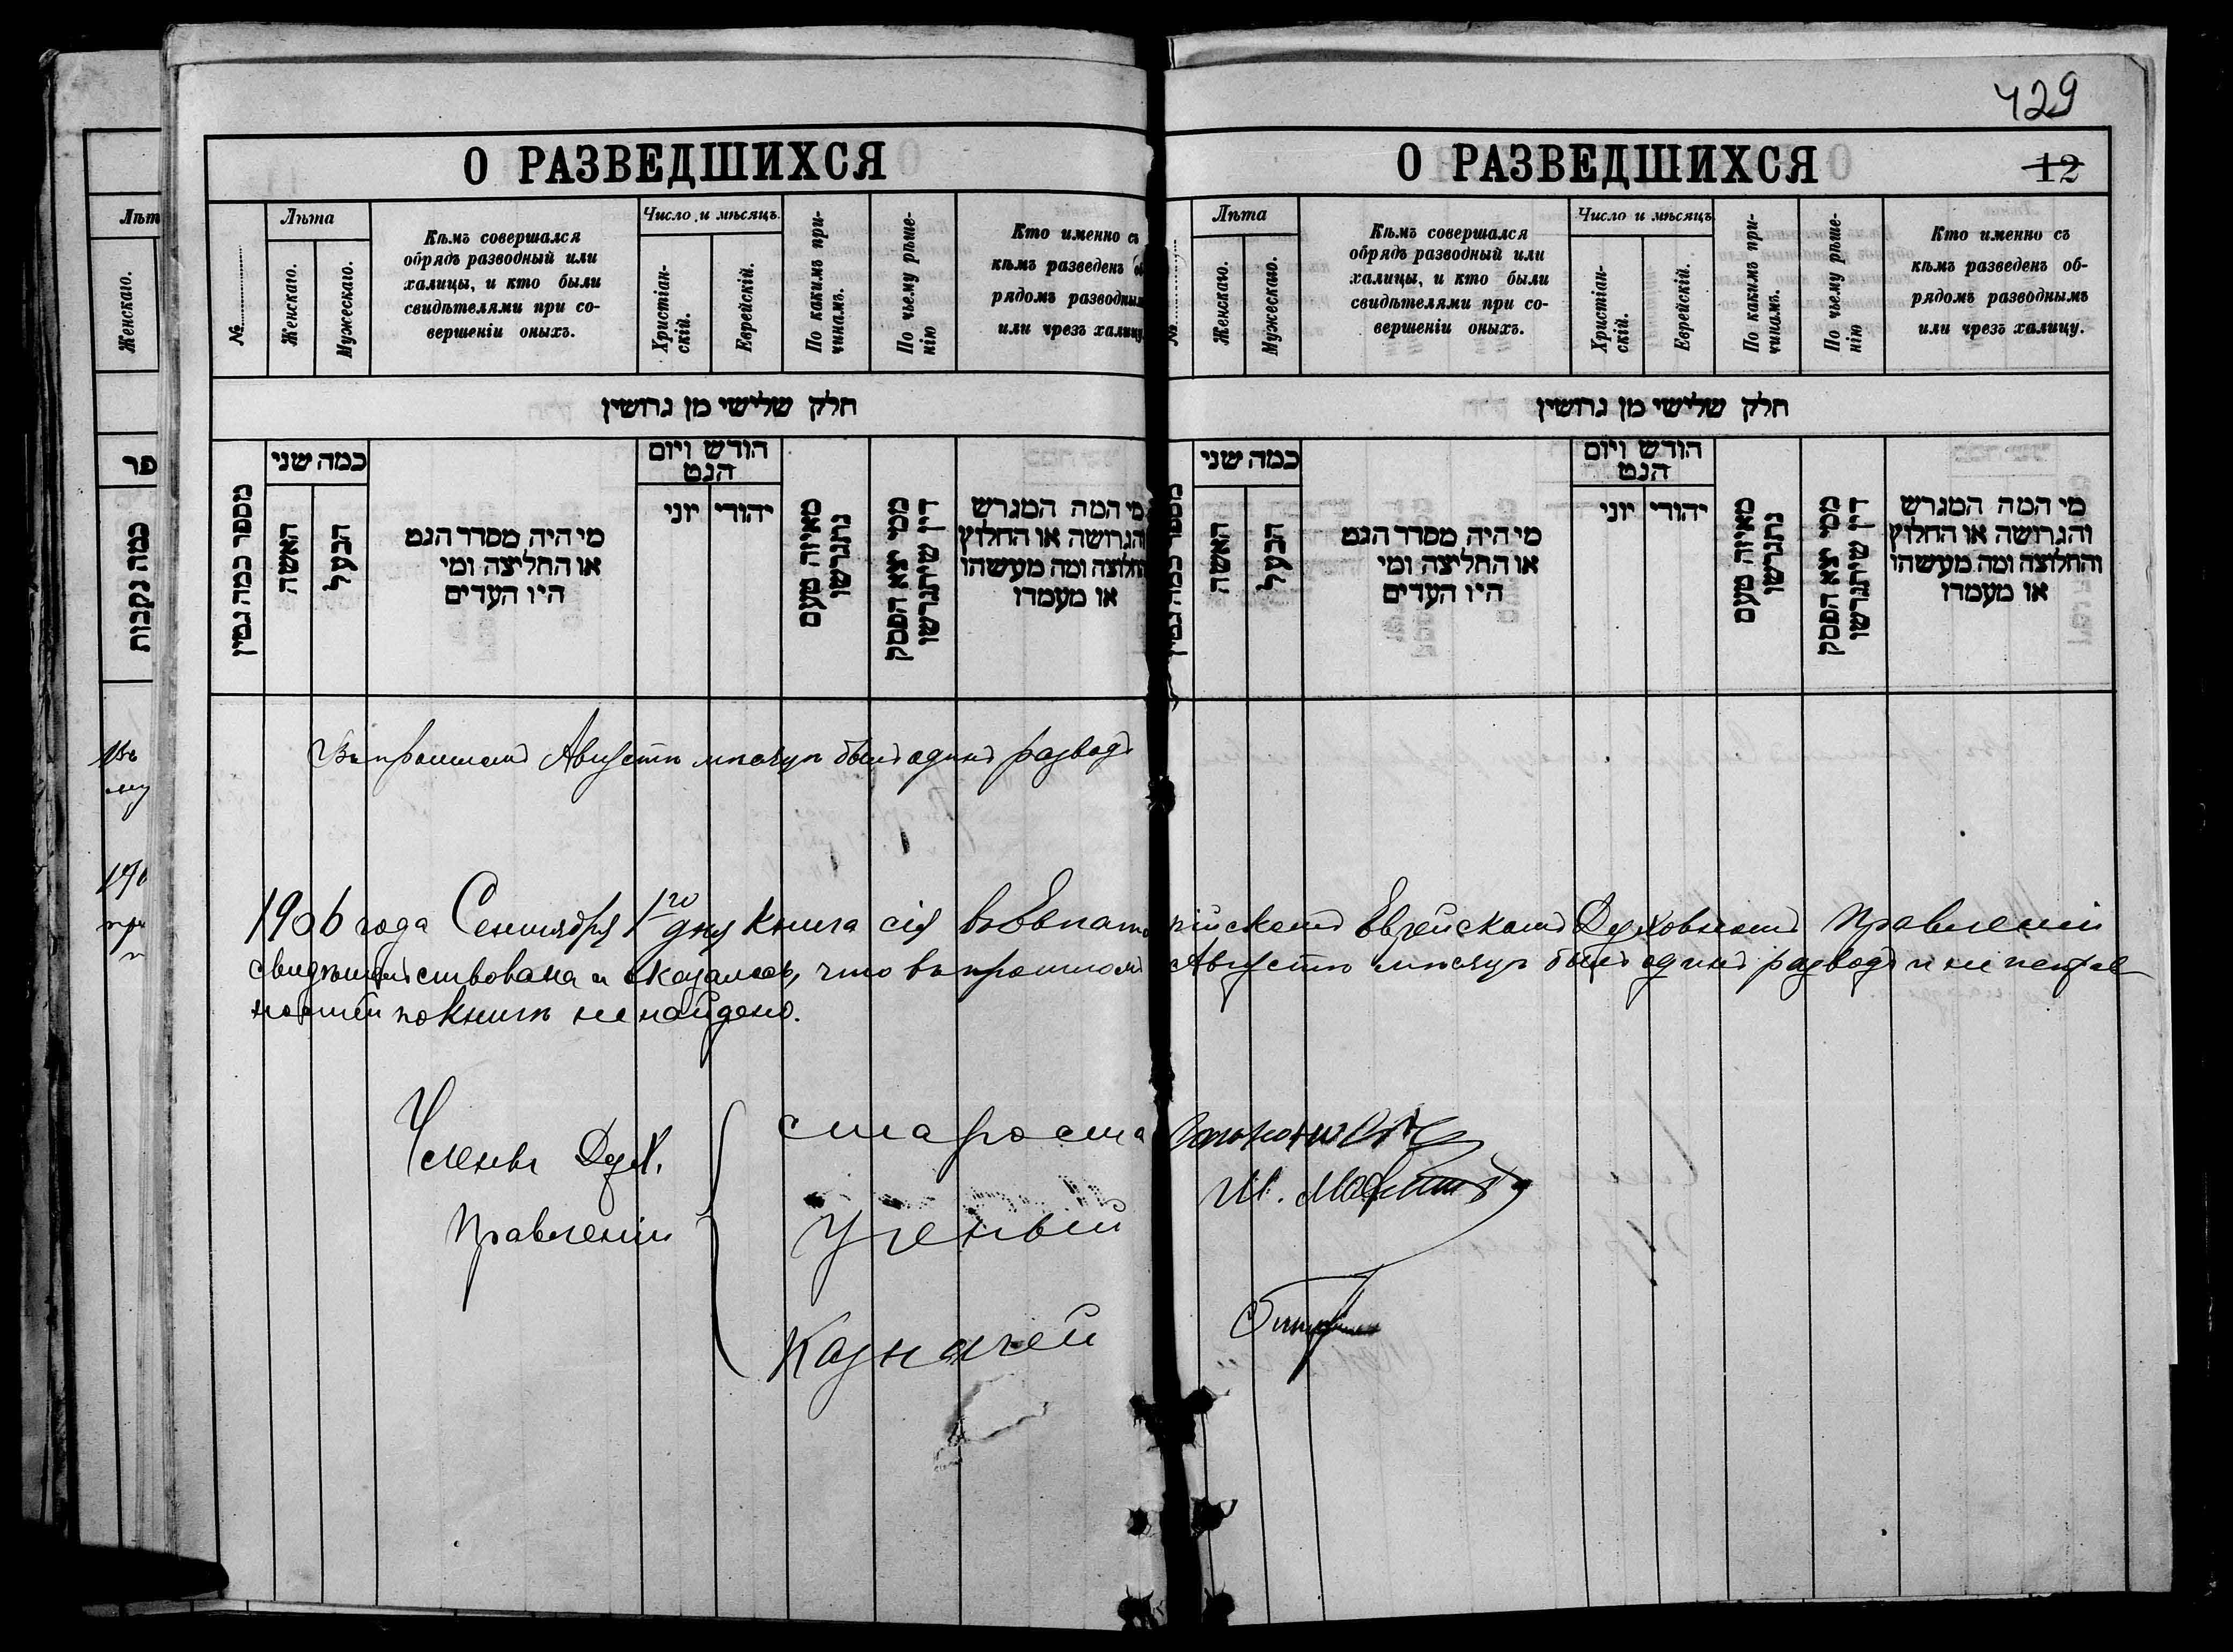 429
О РАЗВЕДШИХСЯ
№
Лѣта
Женскаго.
Мужескаго.
Кѣмъ совершался
обрядъ разводный или
халицы, и кто были
свидѣтелями при со-
вершеніи оныхъ.
Число и мѣсяцъ.
Христіан-
скій.
Еврейскій.
По какимъ при-
чинамъ.
По чьему рѣше-
нію
Кто именно съ
кѣмъ разведенъ об
рядомъ разводным
или чрезъ халицу
חלק שלישי מן גרושין
מספר כמה גטין
כמה שני
האשה
הבעל
מי היה מסדר הגט
או החליצה ומי
היו העדים
חודש ויום
הגט
יהודי
יוני
מאיזה טעם
נתגרשו
ממי יצא הפסק
דין שיתגרשו
מי המה המגרש
והגרושה או החלוץ
והחלוצה ומה מעשהו
או מעמדו
Въ прошломъ Августѣ мѣсяцѣ былъ одинъ разводъ
О РАЗВЕДШИХСЯ
12
№
Лѣта
Женскаго.
Мужескаго.
Кѣмъ совершался
обрядъ разводный или
халицы, и кто были
свидѣтелями при со-
вершеніи оныхъ.
Число и мѣсяцъ
Христіан-
скій.
Еврейскій.
По какимъ при-
чинамъ.
По чьему рѣше-
нію
Кто именно съ
кѣмъ разведенъ об-
рядомъ разводнымъ
или чрезъ халицу.
חלק שלישי מן גרושין
כמה שני
האשה
הבעל
מי היה מסדר הגט
או החליצה ומי
היו העדים
חודש ויום
הגט
יהודי
יוני
מאיזה טעם
נתגרשו
ממי יצא הפסק
דין שיתגרשו
מי המה המגרש
והגרושה או החלוץ
והחלוצה ומה מעשהו
או מעמדו
1906 года Сентября 1го дня книга сія въ Евпаторійскомъ Еврейскомъ Духовномъ Правленіи
свидѣтельствована и оказалось, что въ прошломъ Августѣ мѣсяцѣ былъ одинъ разводъ и не исправ
ностей по книгѣ не найдено.
Члены Дух.
Правленія
староста
Ш.
Ученый
Казначей
Лѣт
Женскаго.
פר
כמה נקבות